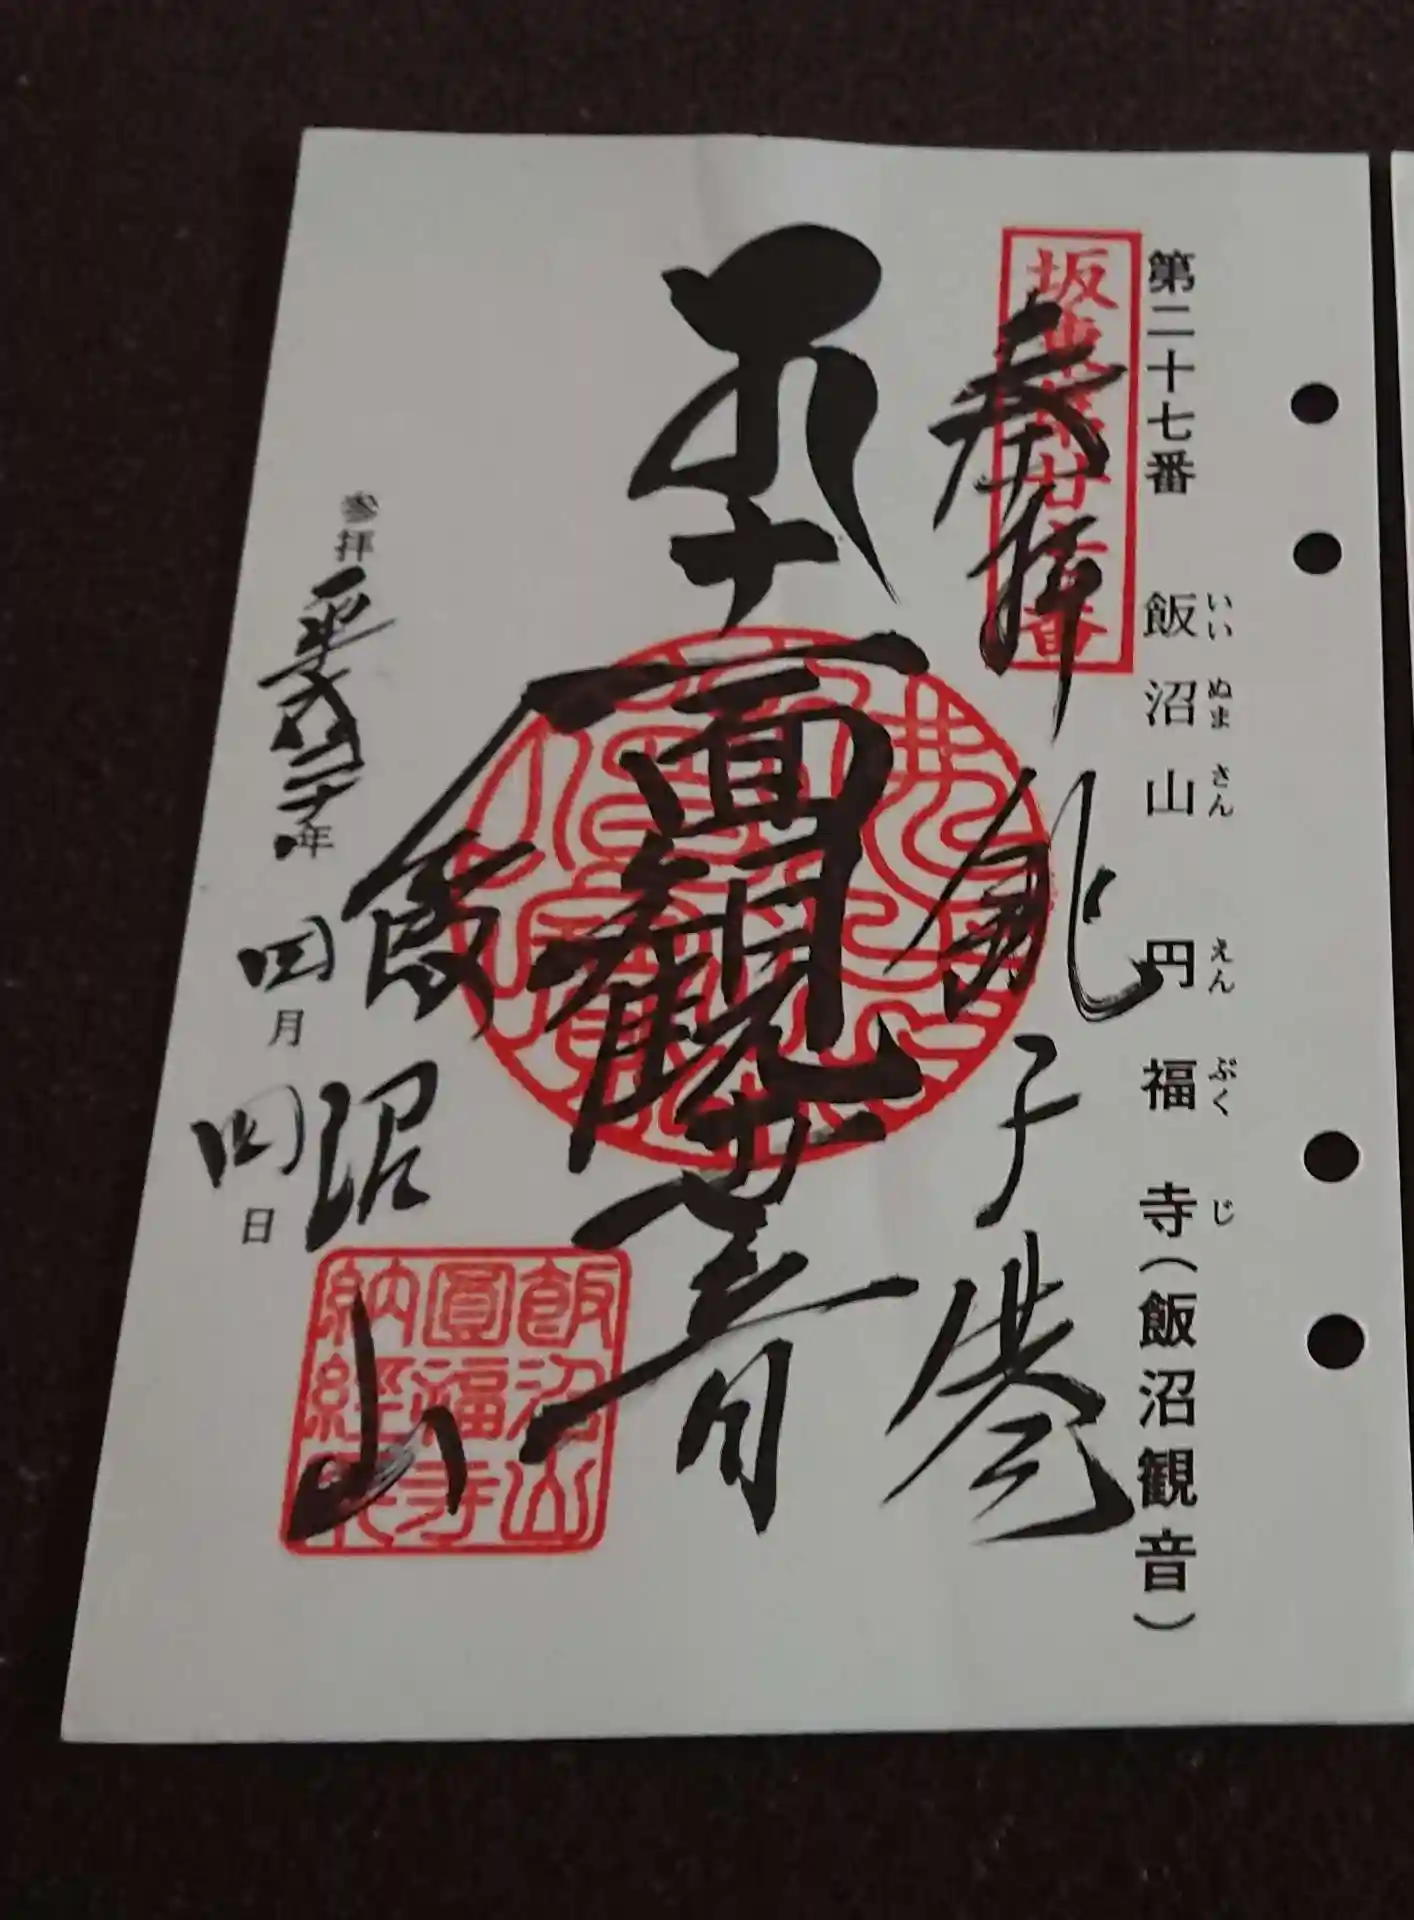 第二十七番 飯沼山 円福寺(飯沼観音)
いいぬまさん えんぷくじ
奉拝 銚子港
十一面観世音
飯沼山
飯沼山
圓福寺
納経
参拝 平成 年 四月 四日